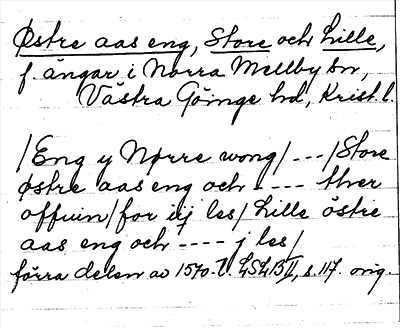 Østre aas eng, Store och Lille,
f. ängar i Norra Mellby sn,
Västra Göinge hd, Krist. l.
/Eng y Nørre wong/ - - - /Store
østre aas eng och - - - - thver
offuin/for uj les/ Lille östre
aas eng och - - - - j les/
förra delen av 1570-t. LSLB II, s. 117. orig.